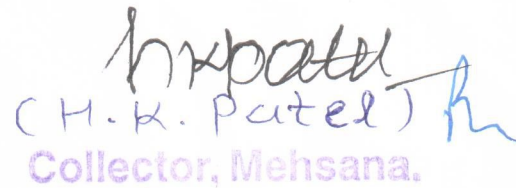 hkpatel
(H.K. Patel)
Collector, Mehsana.